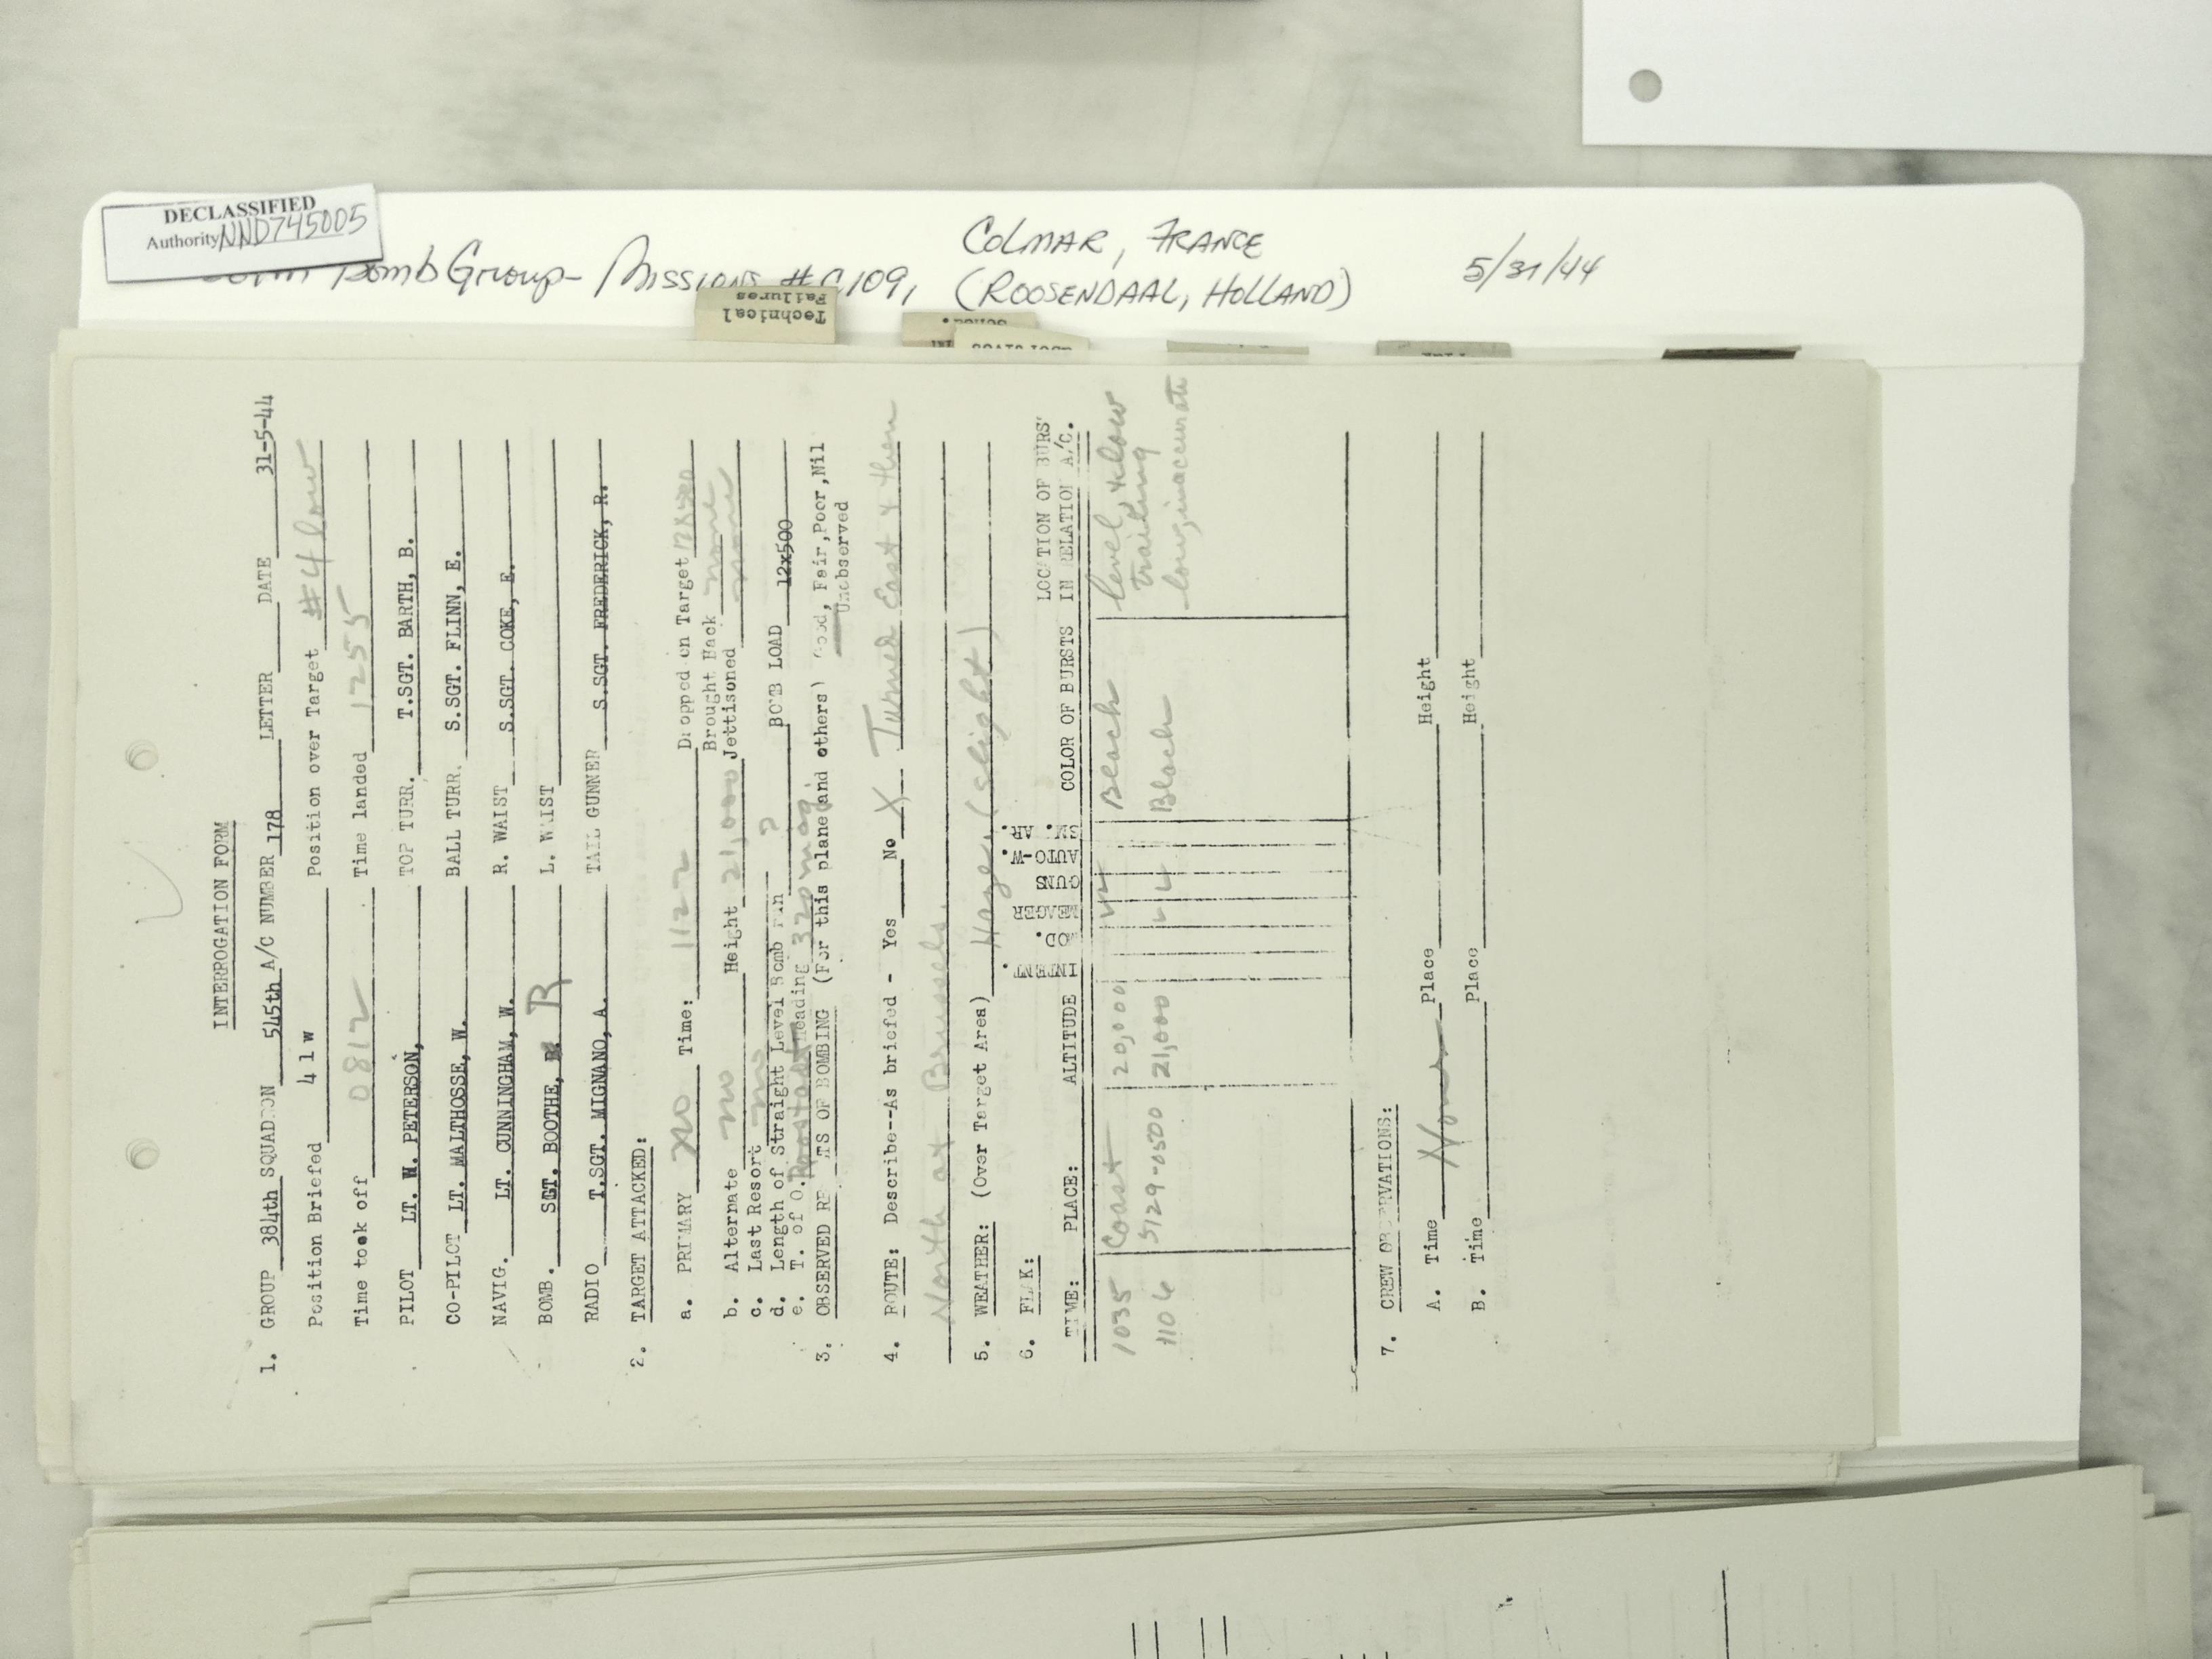 DECLASSIFIED
Authority NND745005
Bomb Group - Missions # 109, COLMAR, FRANCE
(ROOSENDAAL, HOLLAND)
5/31/44
Technical
Failures
INTERROGATION FORM
1. GROUP 384th SQUADRON 545th A/C NUMBER 178 LETTER DATE 31-5-44
Position Briefed 4 l w Position over Target #4 low
Time took off 0812 Time landed 1255
PILOT LT. W. PETERSON, TOP TURR. T.SGT. BARTH, B.
CO-PILOT LT. MALTHOSSE, W. BALL TURR. S.SGT. FLINN, E.
NAVIG. LT. CUNNINGHAM, W. R. WAIST S.SGT. COKE, E.
BOMB. SGT. BOOTHE, R L. WAIST
RADIO T.SGT. MIGNANO, A. TAIL GUNNER S.SGT. FREDERICK, R.
2. TARGET ATTACKED:
a. PRIMARY no Time: 1122 Dropped on Target 12x500
Brought Back none
b. Alternate no Height 21,000 Jettisoned none
c. Last Resort
d. Length of Straight Level Bomb Run ? BOMB LOAD 12x500
e. T. of O. Heading 320 mag.
3. OBSERVED RESULTS OF BOMBING (For this plane and others) Good, Fair, Poor, Nil
Unobserved
4. ROUTE: Describe--As briefed - Yes No X Turned East & then
North at Brussels.
5. WEATHER: (Over Target Area) Haze, (slight)
6. FLAK:
TIME: PLACE: ALTITUDE INTENT. MOD. MEAGER GUNS AUTO-W. SM. AR. COLOR OF BURSTS LOCATION OF BURST IN RELATION A/C.
1035 Coast 20,000 Black level, & low trailing
1106 5129-0500 21,000 Black low, inaccurate
7. CREW OBSERVATIONS:
A. Time None Place Height
B. Time Place Height